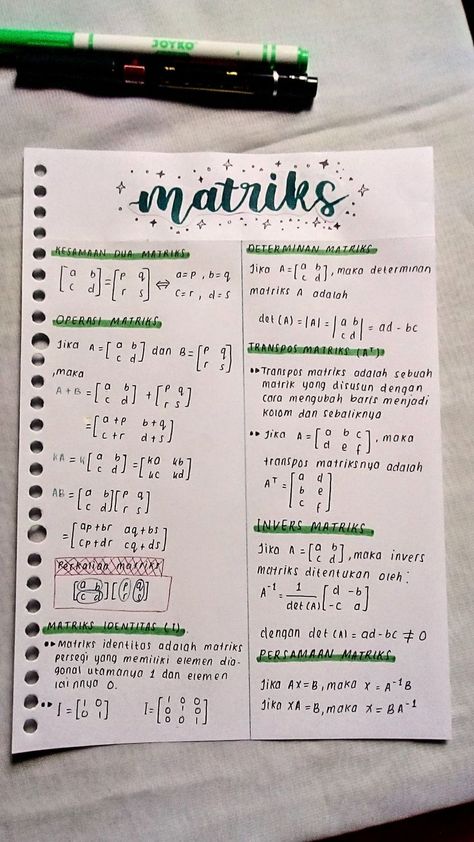 JOYKO
matriks
KESAMAAN DUA MATRIKS
[a b; c d] = [p q; r s] ⇔ a=p, b=q
c=r, d=s
OPERASI MATRIKS
Jika A=[a b; c d] dan B=[p q; r s]
,maka
A+B=[a b; c d] + [p q; r s]
=[a+p b+q; c+r d+s]
KA = K[a b; c d]=[ka kb; kc kd]
AB=[a b; c d][p q; r s]
=[ap+br aq+bs; cp+dr cq+ds]
Perkalian matriks
[a b; c d][p q; r s]
MATRIKS IDENTITAS (I)
Matriks identitas adalah matriks
persegi yang memiliki elemen dia-
gonal utamanya 1 dan elemen
lainnya 0.
I=[1 0; 0 1] I=[1 0 0; 0 1 0; 0 0 1]
DETERMINAN MATRIKS
Jika A=[a b; c d], maka determinan
matriks A adalah
det (A) = |A| = |a b; c d| = ad - bc
TRANSPOS MATRIKS (Aᵀ)
Transpos matriks adalah sebuah
matrik yang disusun dengan
cara mengubah baris menjadi
kolom dan sebaliknya
Jika A=[a b c; d e f], maka
transpos matriksnya adalah
Aᵀ=[a d; b e; c f]
INVERS MATRIKS
Jika A=[a b; c d], maka invers
matriks ditentukan oleh:
A⁻¹ = 1/det(A) [d -b; -c a]
dengan det (A) = ad-bc ≠ 0
PERSAMAAN MATRIKS
Jika AX=B, maka X = A⁻¹B
Jika XA=B, maka X = BA⁻¹